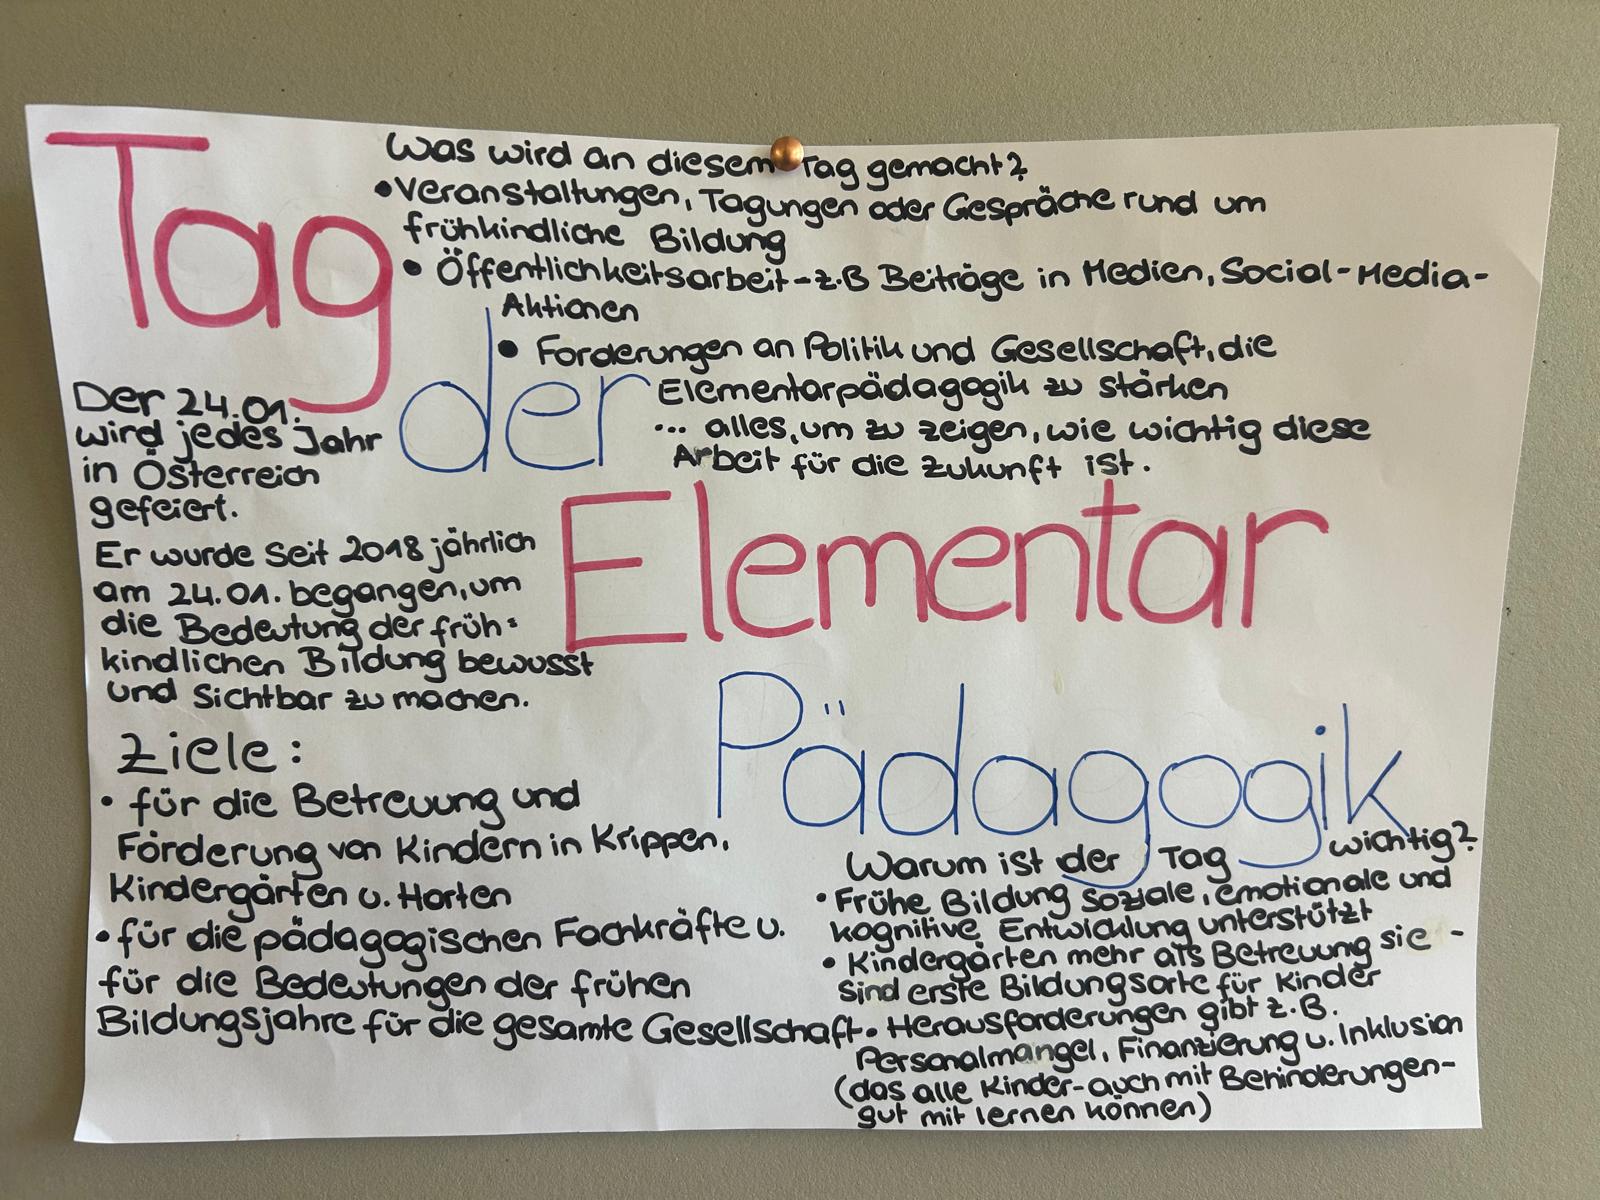 Tag
der
Elementar
Pädagogik
Was wird an diesem Tag gemacht?
• Veranstaltungen, Tagungen oder Gespräche rund um
frühkindliche Bildung
• Öffentlichkeitsarbeit - z.B Beiträge in Medien, Social-Media-
Aktionen
• Forderungen an Politik und Gesellschaft, die
Elementarpädagogik zu stärken
... alles, um zu zeigen, wie wichtig diese
Arbeit für die Zukunft ist.
Der 24.01.
wird jedes Jahr
in Österreich
gefeiert.
Er wurde seit 2018 jährlich
am 24.01. begangen, um
die Bedeutung der früh=
kindlichen Bildung bewusst
und sichtbar zu machen.
Ziele:
• für die Betreuung und
Förderung von Kindern in Krippen,
Kindergärten u. Horten
• für die pädagogischen Fachkräfte u.
für die Bedeutungen der frühen
Bildungsjahre für die gesamte Gesellschaft.
Warum ist der Tag wichtig?
• Frühe Bildung soziale, emotionale und
kognitive Entwicklung unterstützt
• Kindergärten mehr als Betreuung sie -
sind erste Bildungsorte für Kinder
• Herausforderungen gibt z.B.
Personalmangel, Finanzierung u. Inklusion
(das alle Kinder - auch mit Behinderungen-
gut mit lernen können)